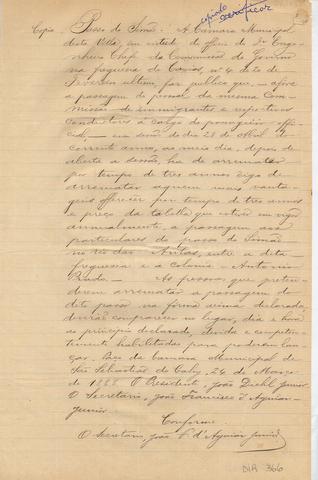 copiado
certificar
Copia. Passo do Simão. A Camara Municipal
desta Villa, em virtude de officio do Dr. Enge-
nheiro Chefe da Commissão do Governo
na freguesia de Caxias nº 4 de 20 de
Fevereiro ultimo, faz publico que, afóra
a passagem do pessoal da mesma Com-
missão de immigrantes e respectivos
conductores a cargo do passageiro offi-
cial, em sessão do dia 28 de Abril do
corrente anno, ao meio dia, depois de
aberta a sessão, ha de arrematar
por tempo de tres annos digo de
arrematar a quem mais vanta-
gens offerecer por tempo de tres annos
e preço da tabella que estiver em vigor
annualmente, a passagem aos
particulares do passo do Simão
no rio das Antas, entre a dita
freguesia e a colonia Antonio
Prado. As pessoas que preten-
derem arrematar a passagem do
dito passo na forma acima declarada,
deverão comparecer no lugar, dia e hora
ao principio declarado, sendo competen-
temente habilitadas para poderem lan-
çar. Paço da Camara Municipal de
São Sebastião do Cahy, 24 de Março
de 1888. O Presidente, João Diehl Junior
O Secretario, João Francisco d'Aguiar
Junior.
Conforme
O Secretario, João F. d'Aguiar Junior
DIR 366